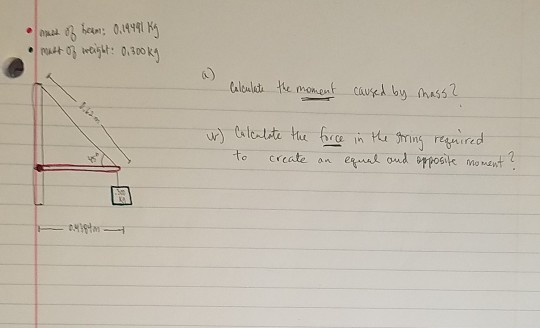 mass of beam: 0.19491 Kg
mass of weight: 0.300 kg
a)
Calculate the moment caused by mass?
Calculate the force in the string required
to create an equal and opposite moment?
45°